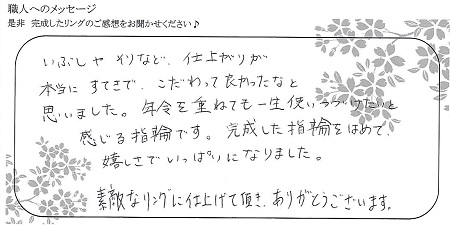 職人へのメッセージ
是非 完成したリングのご感想をお聞かせください♪
いぶしや そりなど、仕上がりが
本当に すてきで、こだわって良かったなと
思いました。年令を重ねても一生使いつづけたいと
感じる指輪です。完成した指輪をはめて、
嬉しさでいっぱいになりました。
素敵なリングに仕上げて頂き、ありがとうございます。